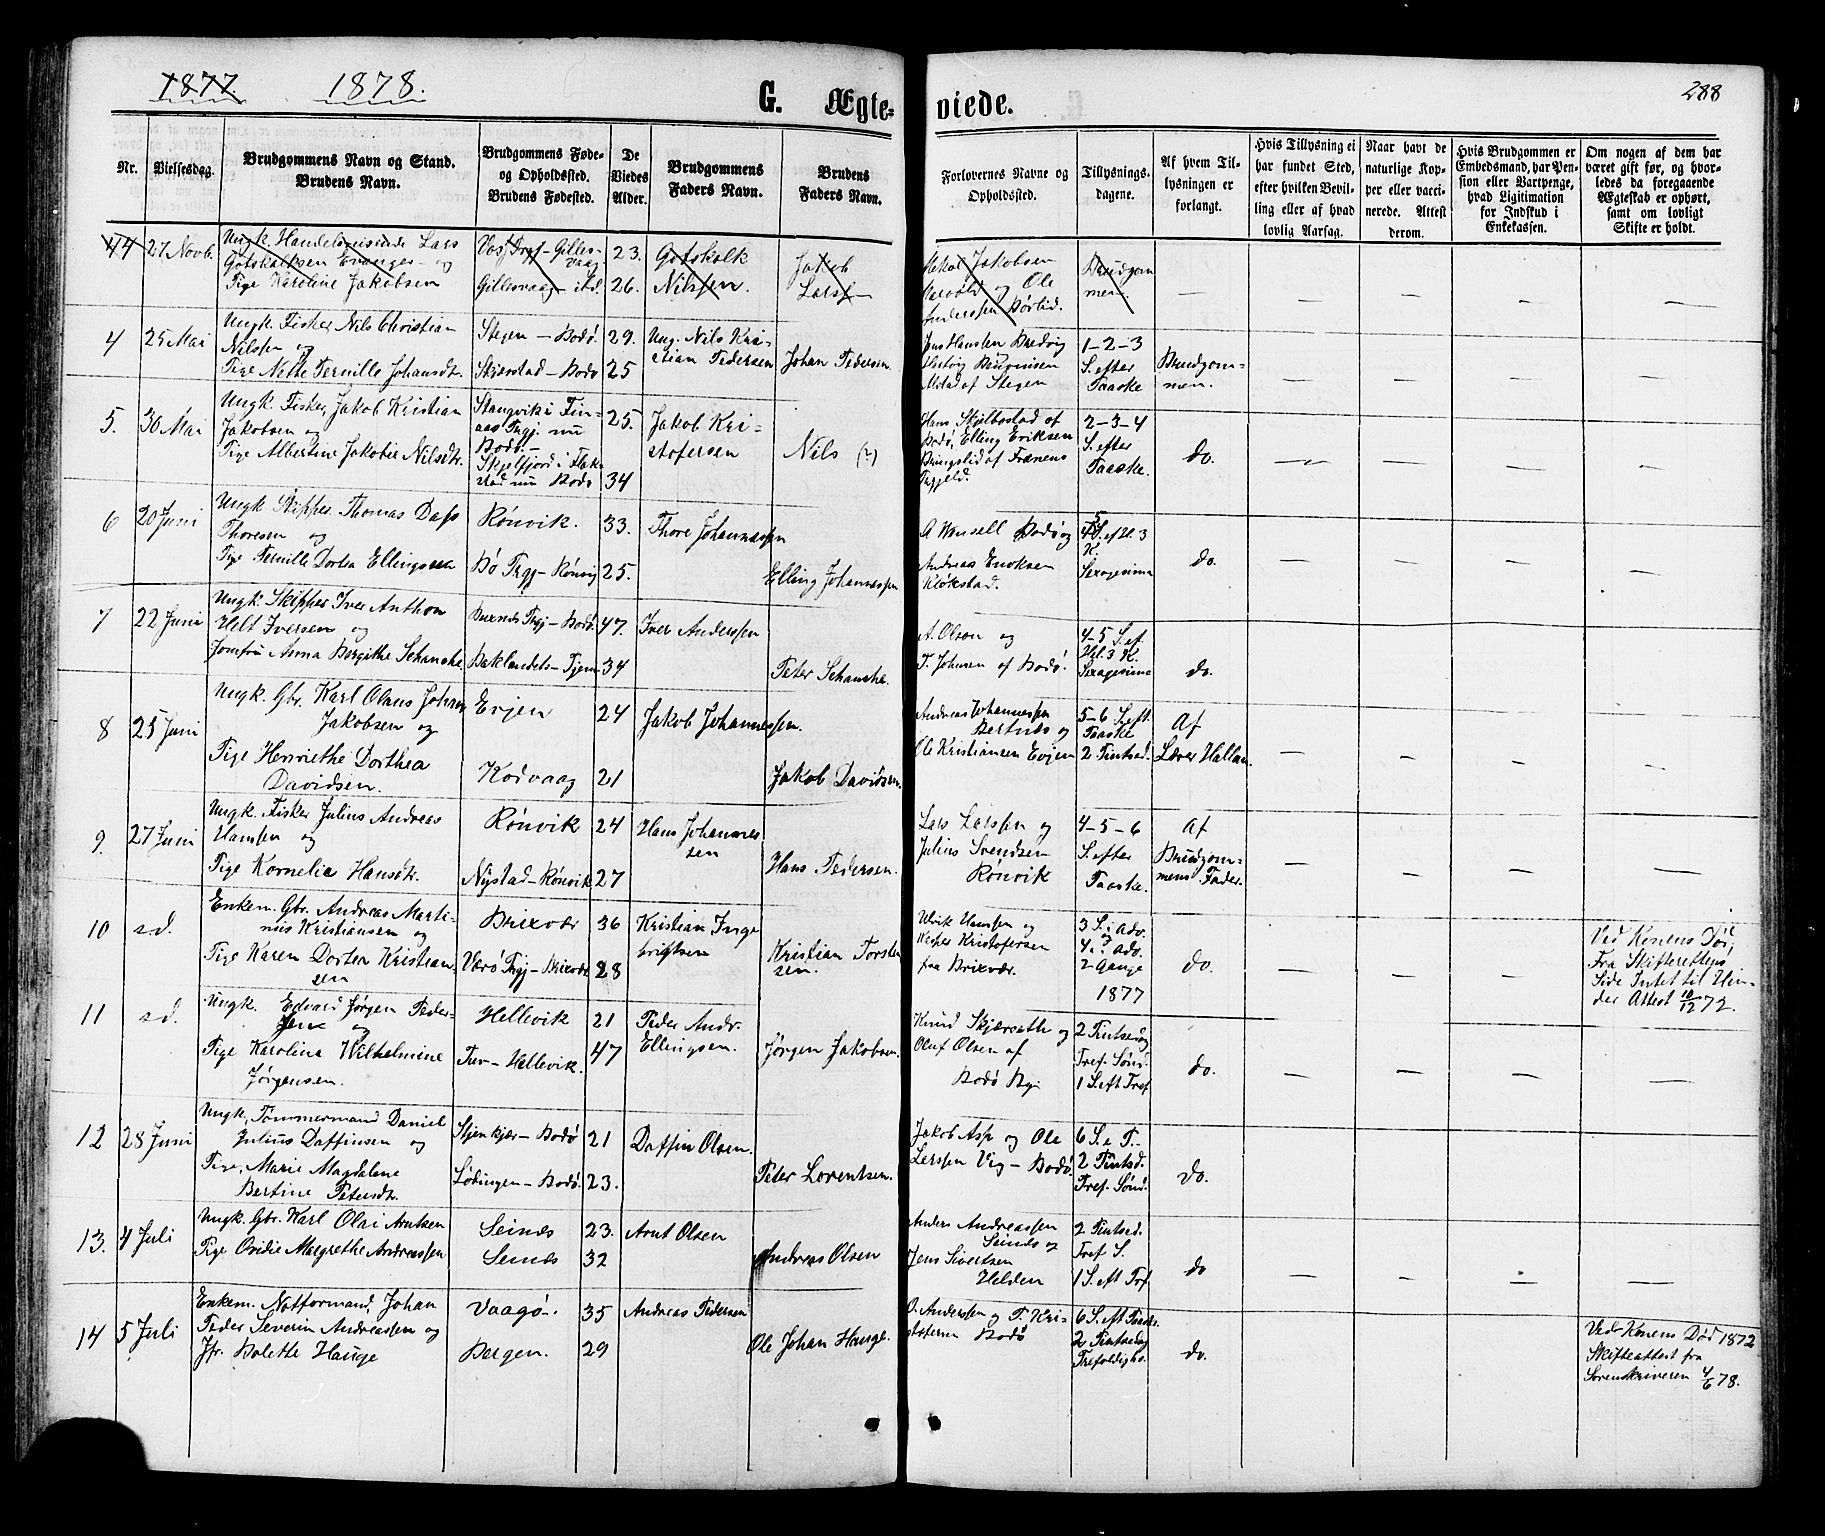 1877. 1878.
G. Ægte-
viede.
288
Nr.
Vielsesdag.
Brudgommens Navn og Stand.
Brudens Navn.
Brudgommens Føde-
og Opholdssted.
Brudens Fødested.
De
Viedes
Alder.
Brudgommens
Faders Navn.
Brudens
Faders Navn.
Forlovernes Navne og
Opholdssted.
Tillysnings-
dagene.
Af hvem Til-
lysningen er
forlangt.
Hvis Tillysning ei
har fundet Sted,
efter hvilken Bevil-
ling eller af hvad
lovlig Aarsag.
Naar havt de
naturlige Kop-
per eller vacci-
nerede. Attest
derom.
Hvis Brudgommen er
Embedsmand, har Pen-
sion eller Vartpenge,
hvad Ligitimation
for Indskud i
Enkekassen.
Om nogen af dem har
været gift før, og hvor-
ledes da foregaaende
Ægteskab er ophørt,
samt om lovligt
Skifte er holdt.
44 27 Novb.
Ungk. Handelsreisende Lars
Gotskalksen Evanger og
Tige Karoline Jakobsen
23.
Gillesvaag 26.
Gotskalk
Nilssen.
Jakob
Larss
Jakobsen
og Ole
Anderssen
Brudgom
men.
4 25 Mai
Ungk. Fisker Nils Christian
Nilssen og
Pige Nette Pernille Johansdt.
Stegen – Bodø 29.
Skjerstad – Bodø 25
Ung. Nils Kri-
stian Pedersen
Johan Pedersen.
Jens Hanssen Bredvig
af Stegen
1-2-3
S. efter
Paaske
Brudgom-
men.
5. 30 Mai
Ungk. Fisker Jakob Kristian
Jakobsen og
Pige Albertine Jakobie Nilsdt.
Stangvik i
nu
Bodø. –
25.
nu Bodø 34
Jakob Kri-
stofersen
Nils (?)
Hans Skjelbostad af
Bodø, Elling Eriksen
af Frænens
Prgjeld.
2-3-4
S. efter
Paaske.
do.
6 20 Juni
Ungk Skipper Thomas Dass
Thoresen og
Pige Pernille Dortea Ellingsen
Rønvik. 33.
Bø Prgj – Rønvig 25.
Thore Johannessen
Elling Johannessen
Bodø og
Andreas Enoksen
Kløkstad.
Sexagesima
do.
7 22 Juni
Ungk. Skipper Iver Anthon
Holt Iversen og
Jomfru Anna Bergithe Schanche
Buxnæs Prgj – Bodø. 47.
Baklandet – Tjem 34
Iver Anderssen
Peter Schanche.
A. Olson og
P. Johnsen af Bodø.
4-5 S. ef.
Hel. 3 K.
Sexagesima
do.
8 25 Juni
Ungk. Gbr. Karl Olaus Johan
Jakobsen og
Pige Henriethe Dorthea
Davidsen.
Evjen 24
Kodvaag 21
Jakob Johannessen.
Jakob Davidsen.
Andreas Johannessen
Bertnes og
Ole Kristiansen Evjen
5-6 S. eft.
Paaske
2 Pintsed.
Af
Lærer Hallan.
9. 27 Juni
Ungk. Fisker Julius Andreas
Hanssen og
Pige Kornelia Hansdtr.
Rønvik 24
Nystad – Rønvik 27
Hans Johannes
sen
Hans Pedersen.
Lars Larssen og
Julius Svendsen
Rønvik
4-5-6
S. efter
Paaske.
Af
Brudgom-
mens Fader.
10 s.d.
Enkem. Gbr. Andreas Marti-
nus Kristiansen og
Pige Karen Dortea Kristian-
sen
Brixvær 36
Værø Prgj – Brixvær 28
Kristian Inge
brigtsen
Kristian Torsten
sen.
Ulrik Hanssen og
Kasper Kristofersen
paa Brixvær.
3 S. i Adv.
og
4. ? Adv.
2 Gange
1877
do.
Ved Konens Død,
Fra Skifterettens
Side Intet til Hin-
der Attest 10/12 72.
11 s.d.
Ungk. Edvard Jørgen Peder-
sen og
Pige Karolina Wilhelmine
Jørgensen.
Hellevik 21
Tuv – Hellevik. 47
Peder Andr.
Ellingsen.
Jørgen Jakobsen.
Knud Skjærseth og
Oluf Olsen af
Bodø By.
2 Pintsedag
Tref. Sønd.
1 S. eft Tref
do.
12 28 Juni
Ungk. Tømmermand Daniel
Julius Daffinsen og
Pige, Marie Magdalene
Bertine Petersdt.
Stjenkjær – Bodø 21
Lødingen – Bodø. 23.
Daffin Olsen.
Peter Lorentsen.
Jakob Asp og Ole
Larssen Vig – Bodø.
6 S. e P.
2 Pintsd.
Tref. Sønd.
do.
13. 4 Juli
Ungk. Gbr. Karl Olai Arntsen
Pige Ovidie Margrethe Andreassen
Seines 23.
Seines 32
Arnt Olsen
Andreas Olsen
Anders Andreassen
Seines og
Jens Sivertsen
Helden
2 Pintsed.
Tref S.
1 S. eft Tref.
do
14 5 Juli
Enkem. Notformand, Johan
Peder Severin Andreassen og
Jfr. Bolette Hauge
Vaagø. 35
Bergen. 29
Andreas Pedersen
Ole Johan Hauge.
O. Anderssen og P. Kri-
stofersen Bodø
6 S. eft Paaske.
2 Pintsedag
Trefoldighs.
do.
Ved Konens Død 1872
Skifteattest fra
Sorenskriveren 4/6 78.